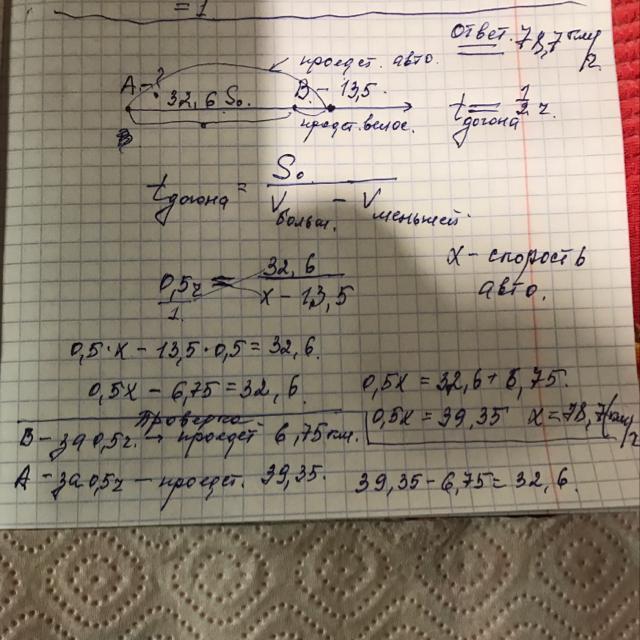 = 1
Ответ. 78,7 км/г.
проедет. авто.
A - ? 32,6 S₀. B. - 13,5.
проедет. велос.
t догона = 1/2 ч.
t догона = S₀ / (V больш. - V меньшей.)
x - скорость авто.
0,5ч / 1. = 32,6 / (x - 13,5)
0,5·x - 13,5·0,5 = 32,6.
0,5x - 6,75 = 32,6.
0,5x = 32,6 + 6,75.
0,5x = 39,35 x = 78,7 км/г
Проверка
B - за 0,5ч. → проедет 6,75 км.
A - за 0,5ч - проедет. 39,35.
39,35 - 6,75 = 32,6.